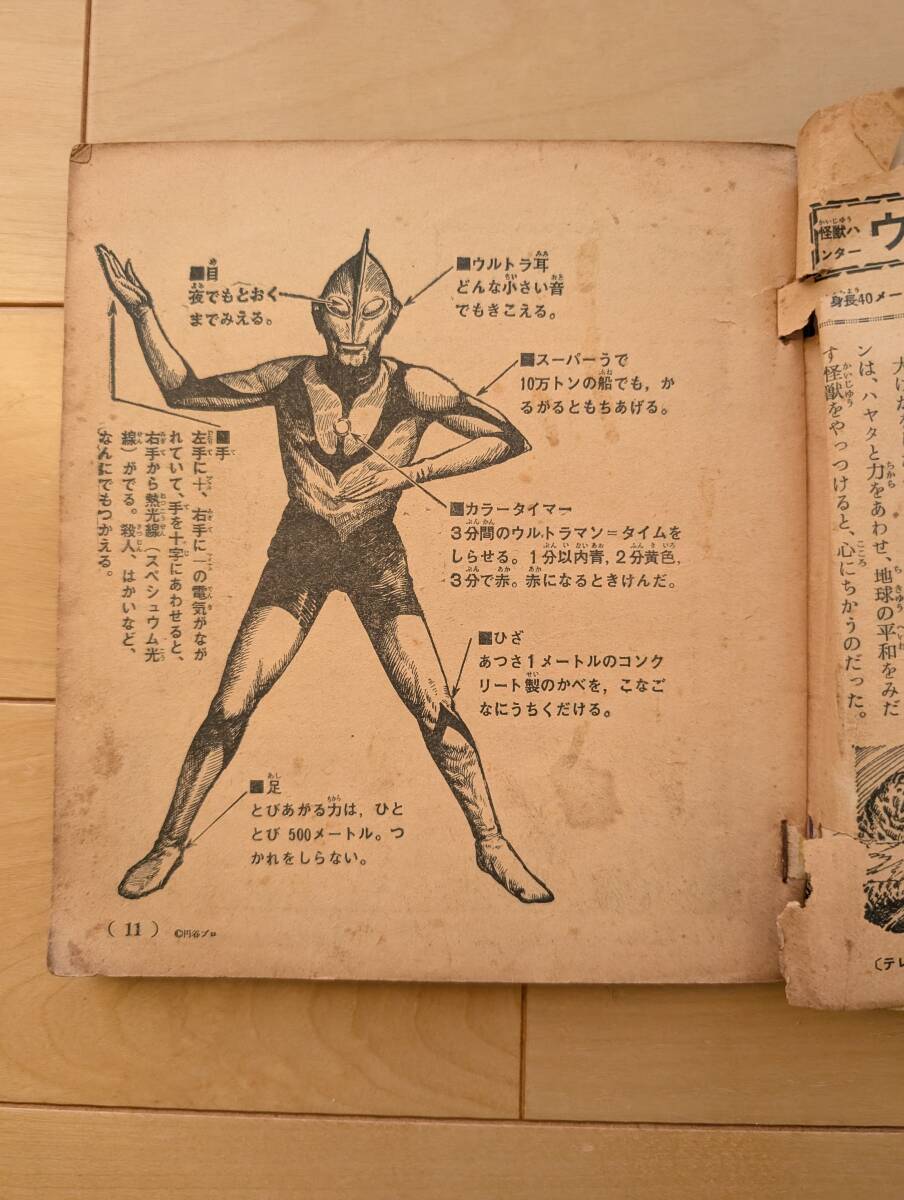 ■目
夜でもとおく
までみえる。
■ウルトラ耳
どんな小さい音
でもきこえる。
■スーパーうで
10万トンの船でも，か
るがるともちあげる。
■手
左手に十、右手に一の電気がなが
れていて、手を十字にあわせると、
右手から熱光線（スペシュウム光
線）がでる。殺人、はかいなど、
なんにでもつかえる。
■カラータイマー
3分間のウルトラマン＝タイムを
しらせる。1分以内青，2分黄色，
3分で赤。赤になるときけんだ。
■ひざ
あつさ1メートルのコンク
リート製のかべを，こなご
なにうちくだける。
■足
とびあがる力は，ひと
とび 500メートル。つ
かれをしらない。
( 11 )
©円谷プロ
怪獣ハ
ンター
ウ
身長40メー
ンは、ハヤタと力をあわせ、地球の平和をみだ
す怪獣をやっつけると、心にちかうのだった。
（テレ